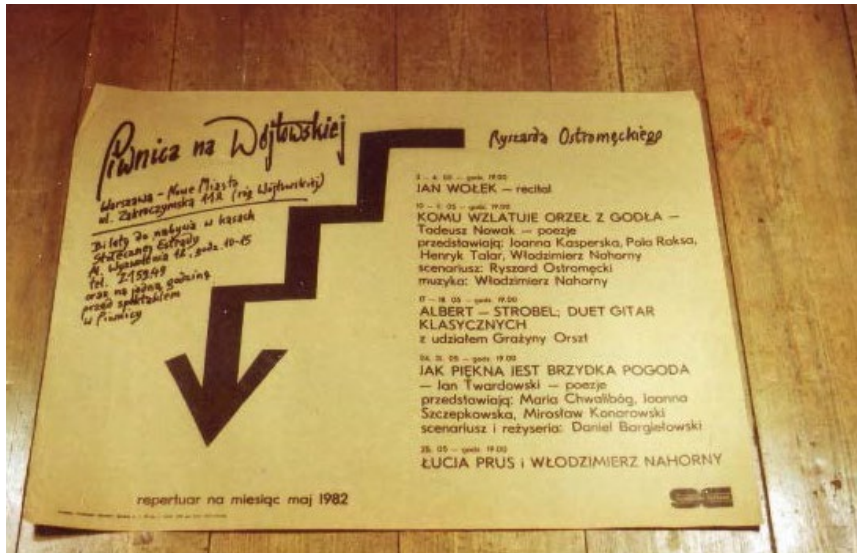 Piwnica na Wójtowskiej
Ryszarda Ostromęckiego
Warszawa – Nowe Miasto
ul. Zakroczymska 11a (róg Wójtowskiej)
Bilety do nabycia w kasach
Stołecznej Estrady
Al. Wyzwolenia 12, godz. 10–15
tel. 215949
oraz na jedną godzinę
przed spektaklem
w Piwnicy
3 – 4. 05 – godz. 19.00
JAN WOŁEK – recital
10 – 11. 05 – godz. 19.00
KOMU WZLATUJE ORZEŁ Z GODŁA –
Tadeusz Nowak – poezje
przedstawiają: Joanna Kasperska, Pola Raksa,
Henryk Talar, Włodzimierz Nahorny
scenariusz: Ryszard Ostromęcki
muzyka: Włodzimierz Nahorny
17 – 18. 05 – godz. 19.00
ALBERT – STROBEL; DUET GITAR
KLASYCZNYCH
z udziałem Grażyny Orszt
24, 31. 05 – godz. 19.00
JAK PIĘKNA JEST BRZYDKA POGODA
– Jan Twardowski – poezje
przedstawiają: Maria Chwalibóg, Joanna
Szczepkowska, Mirosław Konarowski
scenariusz i reżyseria: Daniel Bargiełowski
25. 05 – godz. 19.00
ŁUCJA PRUS i WŁODZIMIERZ NAHORNY
repertuar na miesiąc maj 1982